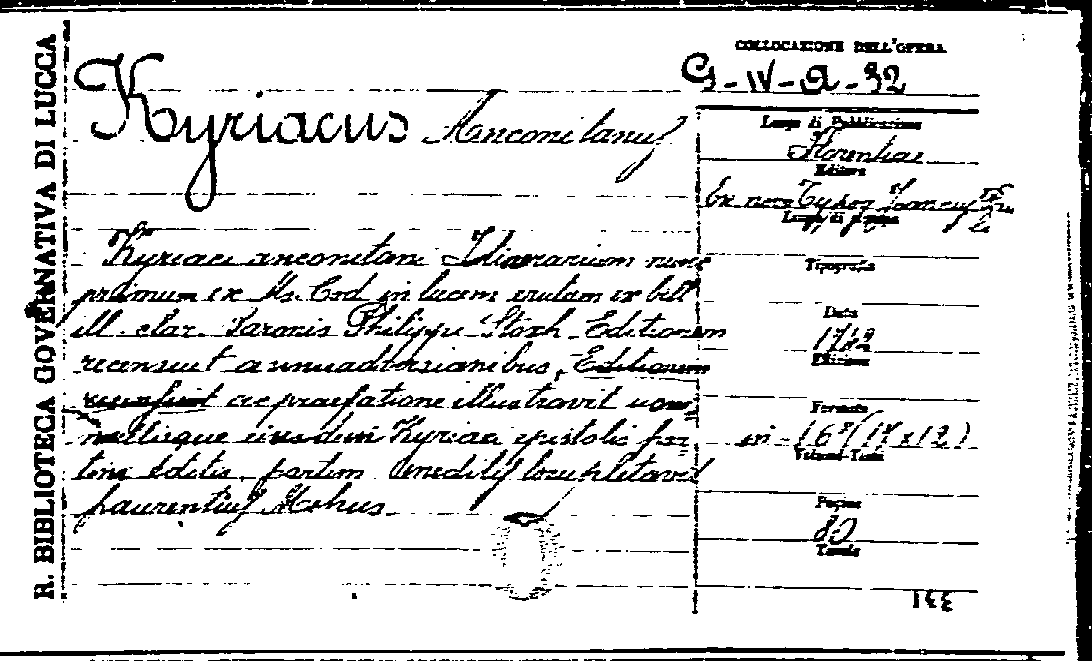 R. BIBLIOTECA GOVERNATIVA DI LUCCA
Kyriacus Anconitanus
Kyriaci anconitani Itinerarium nunc
primum ex Ms. Cod. in lucem erutum ex bibl
ill. clar. Baronis Philippi Stosh. Editionem
recensuit animadversionibus, Editionem
recensuit ac praefatione illustravit non-
nullisque eiusdem Kyriaci epistolis par-
tim editis, partim ineditis locupletavit
Laurentius Mehus.
COLLOCAZIONE DELL'OPERA
Luogo di Pubblicazione
Florentiae
Editore
Ex novo Typog Joannis
Luogo di stampa
Tipografia
Data
1742
Edizione
Formato
in-16º (17x12)
Volume-Tomo
Pagine
80
Tavole